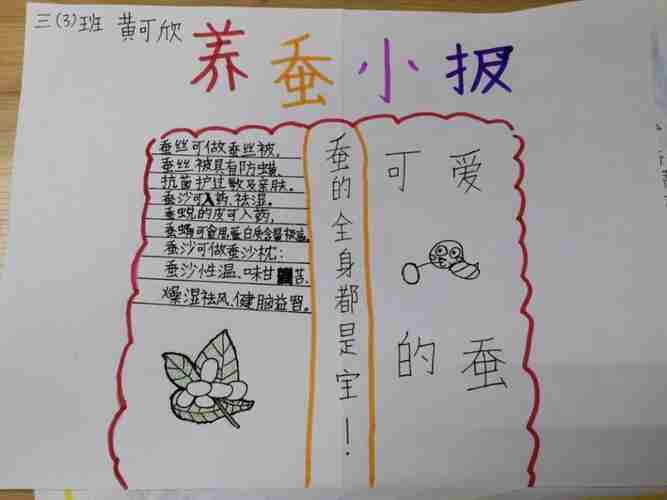 三(3)班 黄可欣
养蚕小报
蚕丝可做蚕丝被,
蚕丝被具有防螨,
抗菌护过敏及亲肤。
蚕沙可入药,祛湿。
蚕蜕的皮可入药,
蚕蛹可食用,蛋白质含量极高。
蚕沙可做蚕沙枕:
蚕沙性温、味甘苦。
燥湿祛风、健脑益胃。
蚕的全身都是宝!
可爱
的蚕